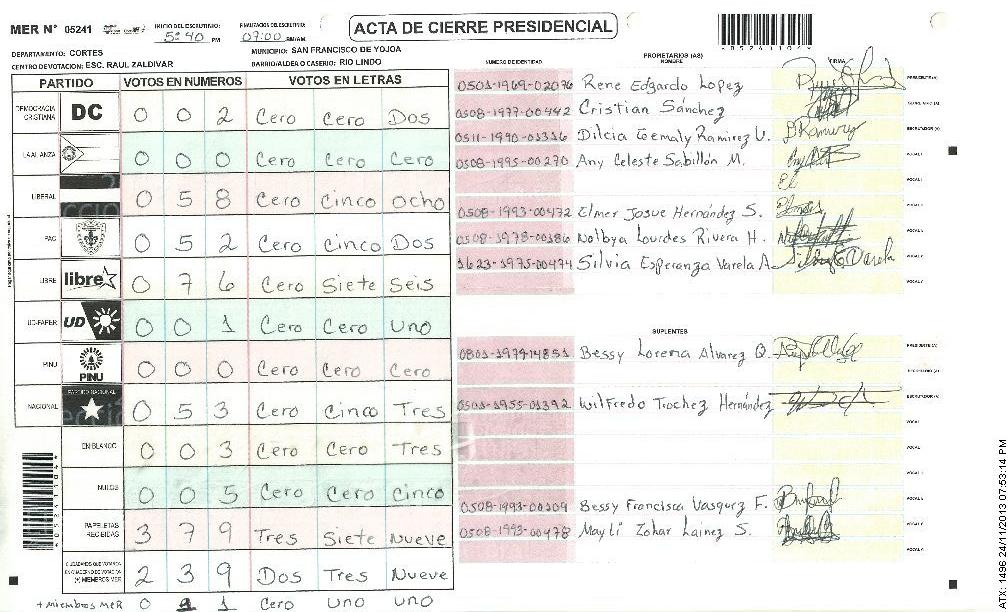 MER N° 05241
INICIO DEL ESCRUTINIO: 5:40 PM
FINALIZACION DEL ESCRUTINIO: 07:00 PM/AM.
ACTA DE CIERRE PRESIDENCIAL
DEPARTAMENTO: CORTES
MUNICIPIO: SAN FRANCISCO DE YOJOA
CENTRO DE VOTACION: ESC. RAUL ZALDIVAR
BARRIO/ALDEA O CASERIO: RIO LINDO
PARTIDO VOTOS EN NUMEROS VOTOS EN LETRAS
DEMOCRACIA CRISTIANA DC 0 0 2 Cero Cero Dos
LA ALIANZA 0 0 0 Cero Cero Cero
LIBERAL 0 5 8 Cero Cinco Ocho
PAC 0 5 2 Cero Cinco Dos
LIBRE libre 0 7 6 Cero Siete Seis
UD-FAPER UD 0 0 1 Cero Cero Uno
PINU PINU 0 0 0 Cero Cero Cero
NACIONAL PARTIDO NACIONAL 0 5 3 Cero Cinco Tres
EN BLANCO 0 0 3 Cero Cero Tres
NULOS 0 0 5 Cero Cero Cinco
PAPELETAS RECIBIDAS 3 7 9 Tres Siete Nueve
CIUDADANOS QUE VOTARON EN CUADERNO DE VOTACION (+) MIEMBROS MER 2 3 9 Dos Tres Nueve
+ Miembros MER 0 1 1 Cero Uno Uno
PROPIETARIOS (AS)
NUMERO DE IDENTIDAD NOMBRE FIRMA
0501-1969-02096 Rene Edgardo Lopez PRESIDENTE (A)
0508-1977-00442 Cristian Sánchez SECRETARIO (A)
0511-1990-01316 Dilcia Ramirez V. ESCRUTADOR (A)
0508-1995-00270 Any Celeste Sabillón M. VOCAL I
VOCAL II
0508-1993-00472 Elmer Josue Hernández S.
0508-1978-00386 Nolbya Lourdes Rivera H.
1623-1975-00474 Silvia Esperanza Varela A
SUPLENTES
0801-1979-14851 Bessy Lorena Alvarez O. PRESIDENTE (A)
SECRETARIO (A)
0501-1955-01392 Wilfredo Trochez Hernández ESCRUTADOR (A)
0508-1993-00109 Bessy Francisca Vasquez F.
0508-1993-00478 Mayli Zohar Lainez S.
ATX: 1496 24/11/2013 07:53:14 PM